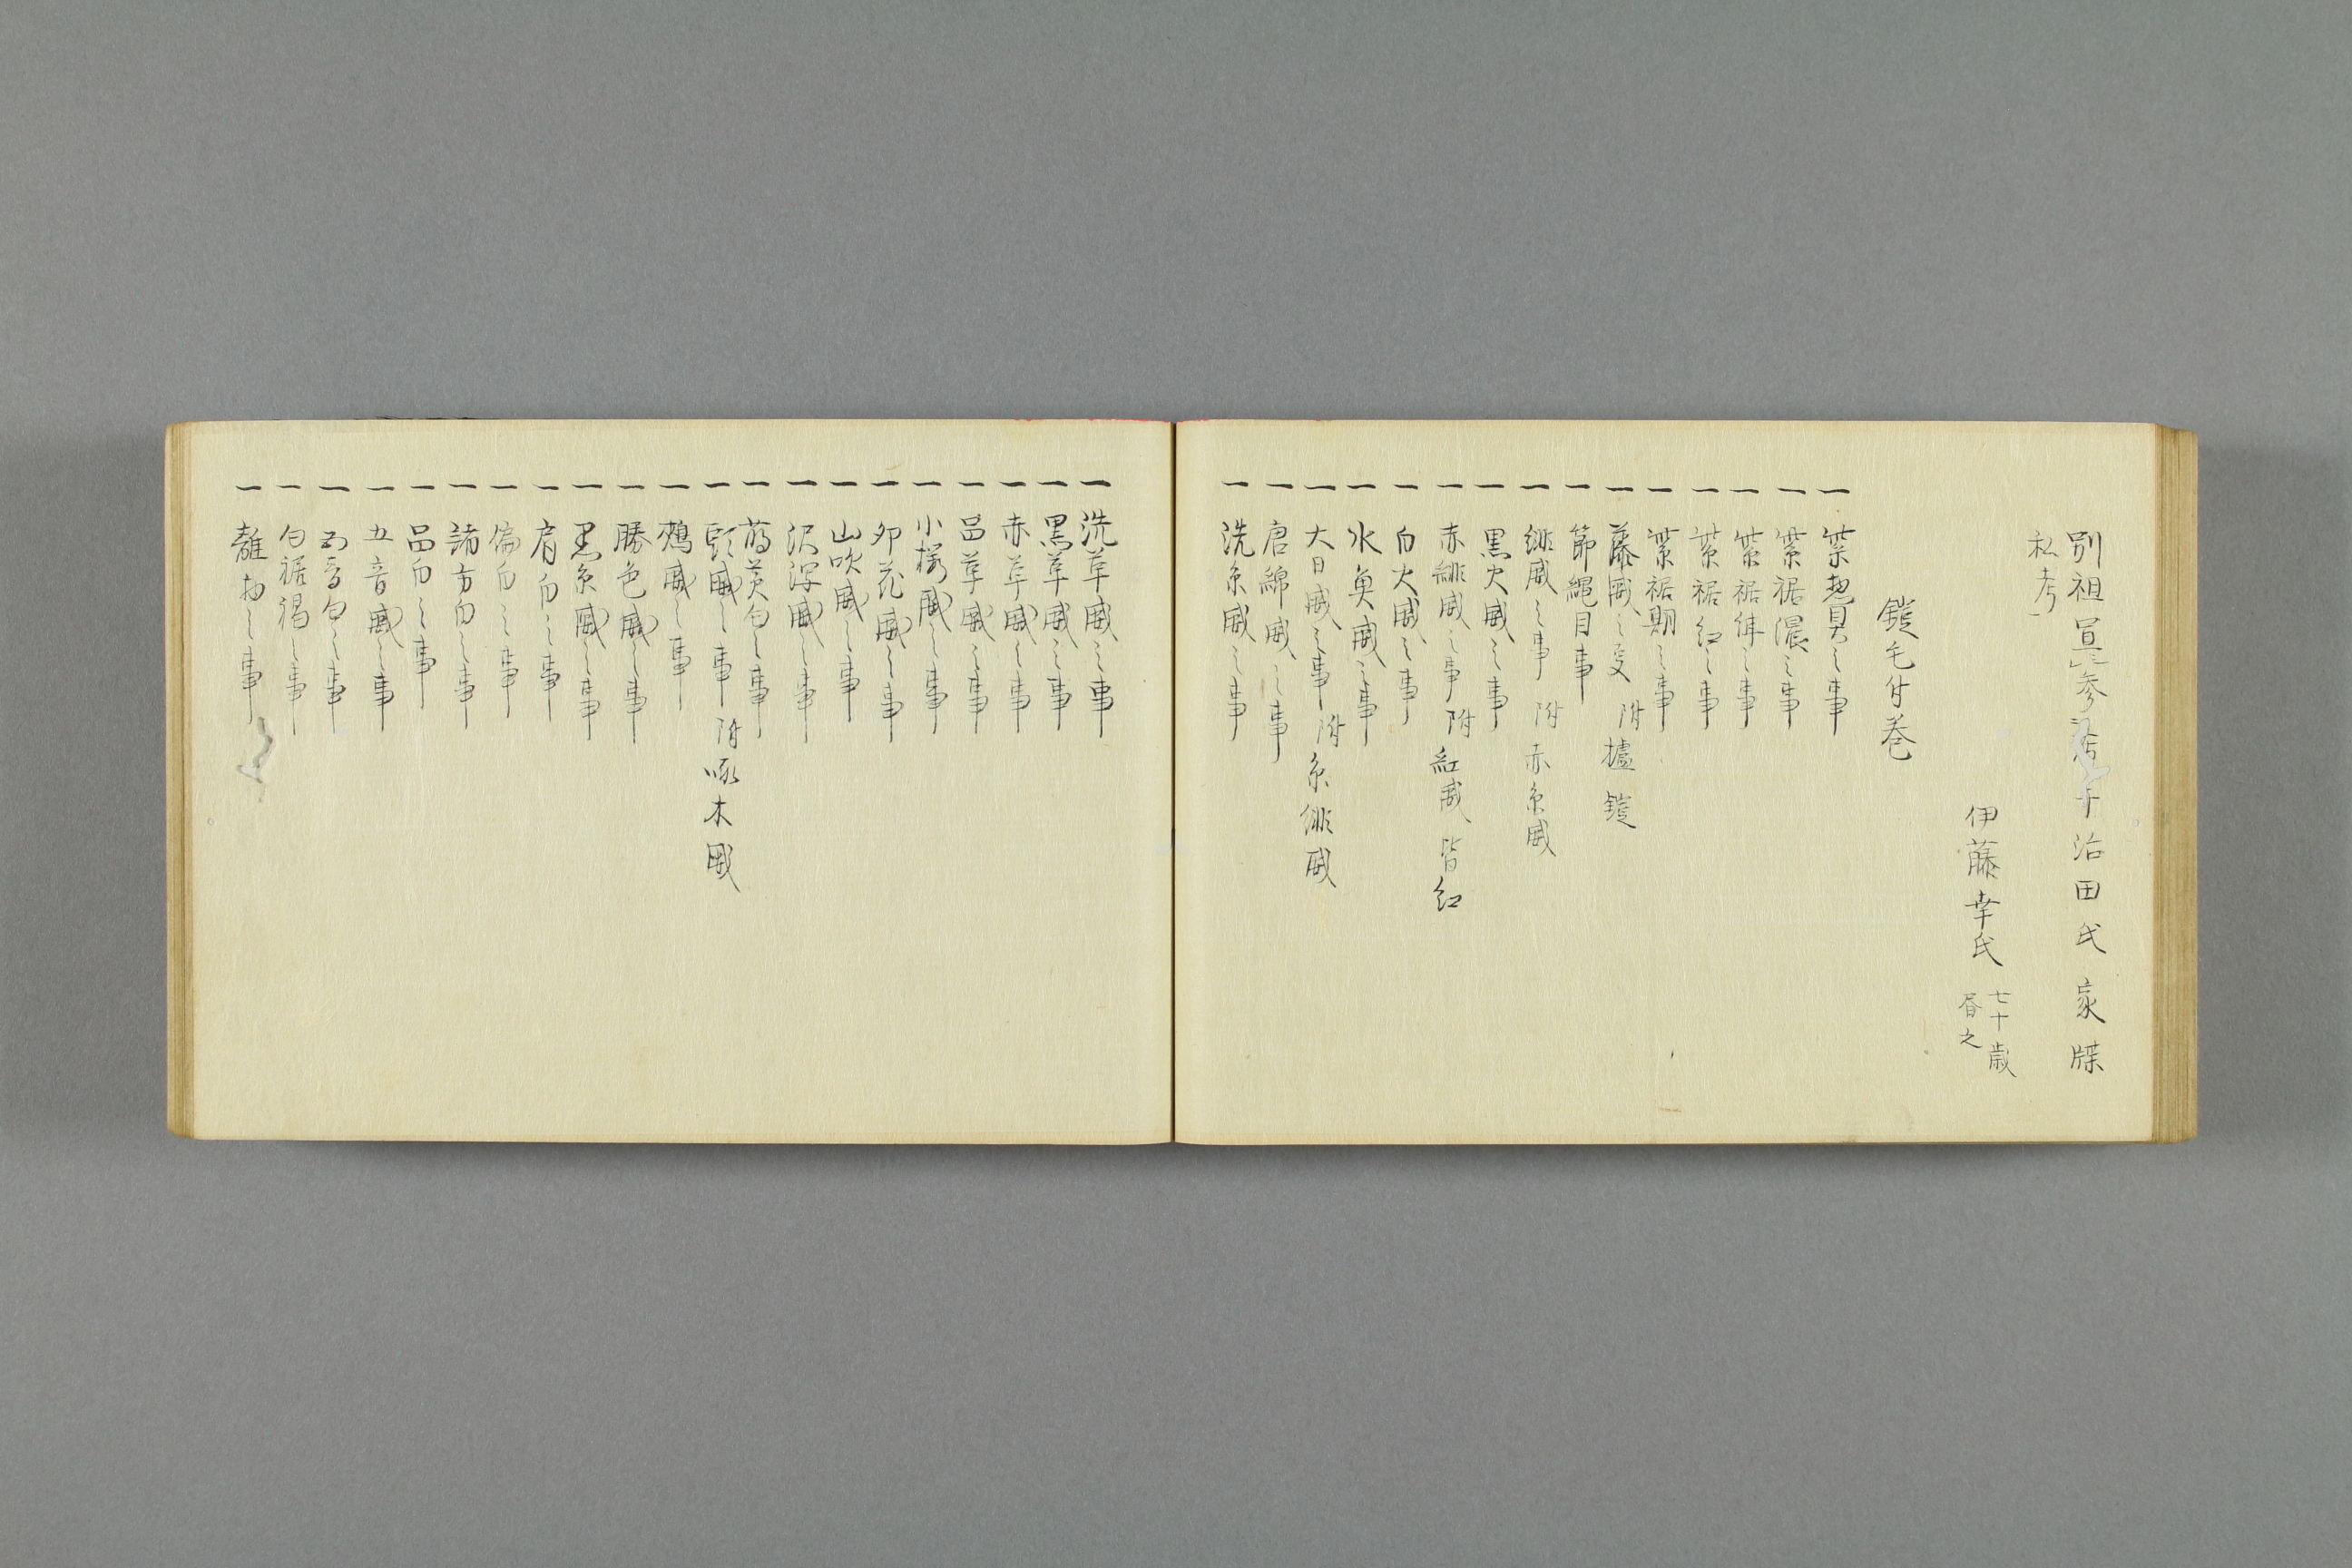 別祖宣参考千治田氏家牒
私考
伊藤幸氏 七十歳
昏之
鎧毛付巻
一 紫惣貝之事
一 紫裾濃之事
一 紫裾俥之事
一 紫裾紅之事
一 紫裾期之事
一 藤威之㕝 附 櫨鎧
一 節縄目事
一 緋威之事 附 赤糸威
一 黒火威之事
一 赤緋威之事 附 紅威 皆紅
一 白火威之事
一 水魚威之事
一 大日威之事 附 糸緋威
一 唐綿威之事
一 洗糸威之事
一 洗革威之事
一 黒革威之事
一 赤革威之事
一 品革威之事
一 小桜威之事
一 卯花威之事
一 山吹威之事
一 沢潟威之事
一 萌黄匂之事
一 頭威之事 附 啄木威
一 鵄威之事
一 勝色威之事
一 黒糸威之事
一 肩白之事
一 偏白之事
一 諸方白之事
一 品白之事
一 五音威之事
一 五音匂之事
一 匂裾裼之事
一 離物之事